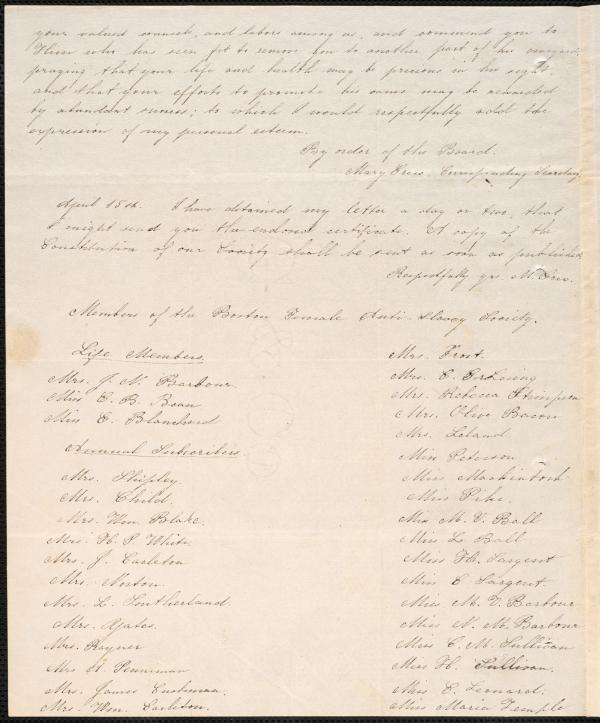 your valued counsels, and labors among us, and commend you to
Him who has seen fit to remove you to another part of his vineyard,
praying that your life and health may be precious in his sight,
and that your efforts to promote his cause may be rewarded
by abundant success; to which I would respectfully add the
expression of my personal esteem.
By order of the Board.
Mary Grew. Corresponding Secretary
April 15th. I have detained my letter a day or two, that
I might send you the enclosed certificate. A copy of the
Constitution of our Society shall be sent as soon as published
Respectfully yrs. M. Grew.
Members of the Boston Female Anti-Slavery Society.
Life Members.
Mrs. J. N. Barbour.
Miss C. B.
Miss E. Blanchard
Annual Subscribers.
Mrs. Shipley.
Mrs. Child.
Mrs. Wm. Blake.
Mrs. H. P. White
Mrs. J. Carleton
Mrs. Norton.
Mrs. L. Southerland.
Mrs. Yates.
Mrs. Rayner
Mrs. Penniman
Mrs. James Cushman.
Mrs. Wm. Carleton.
Mrs. Frost.
Mrs. E.
Mrs. Rebecca Stimpson
Mrs. Olive Bacon
Mrs. Leland.
Miss Peterson
Miss Mackintosh
Miss Pike.
Miss M. V. Ball
Miss L. Ball
Miss H. Sargent
Miss C Sargent
Miss M. V. Barbour
Miss N. M. Barbour
Miss C. M. Sullivan
Miss H. Sullivan.
Miss E. Leonard.
Miss Maria Temple